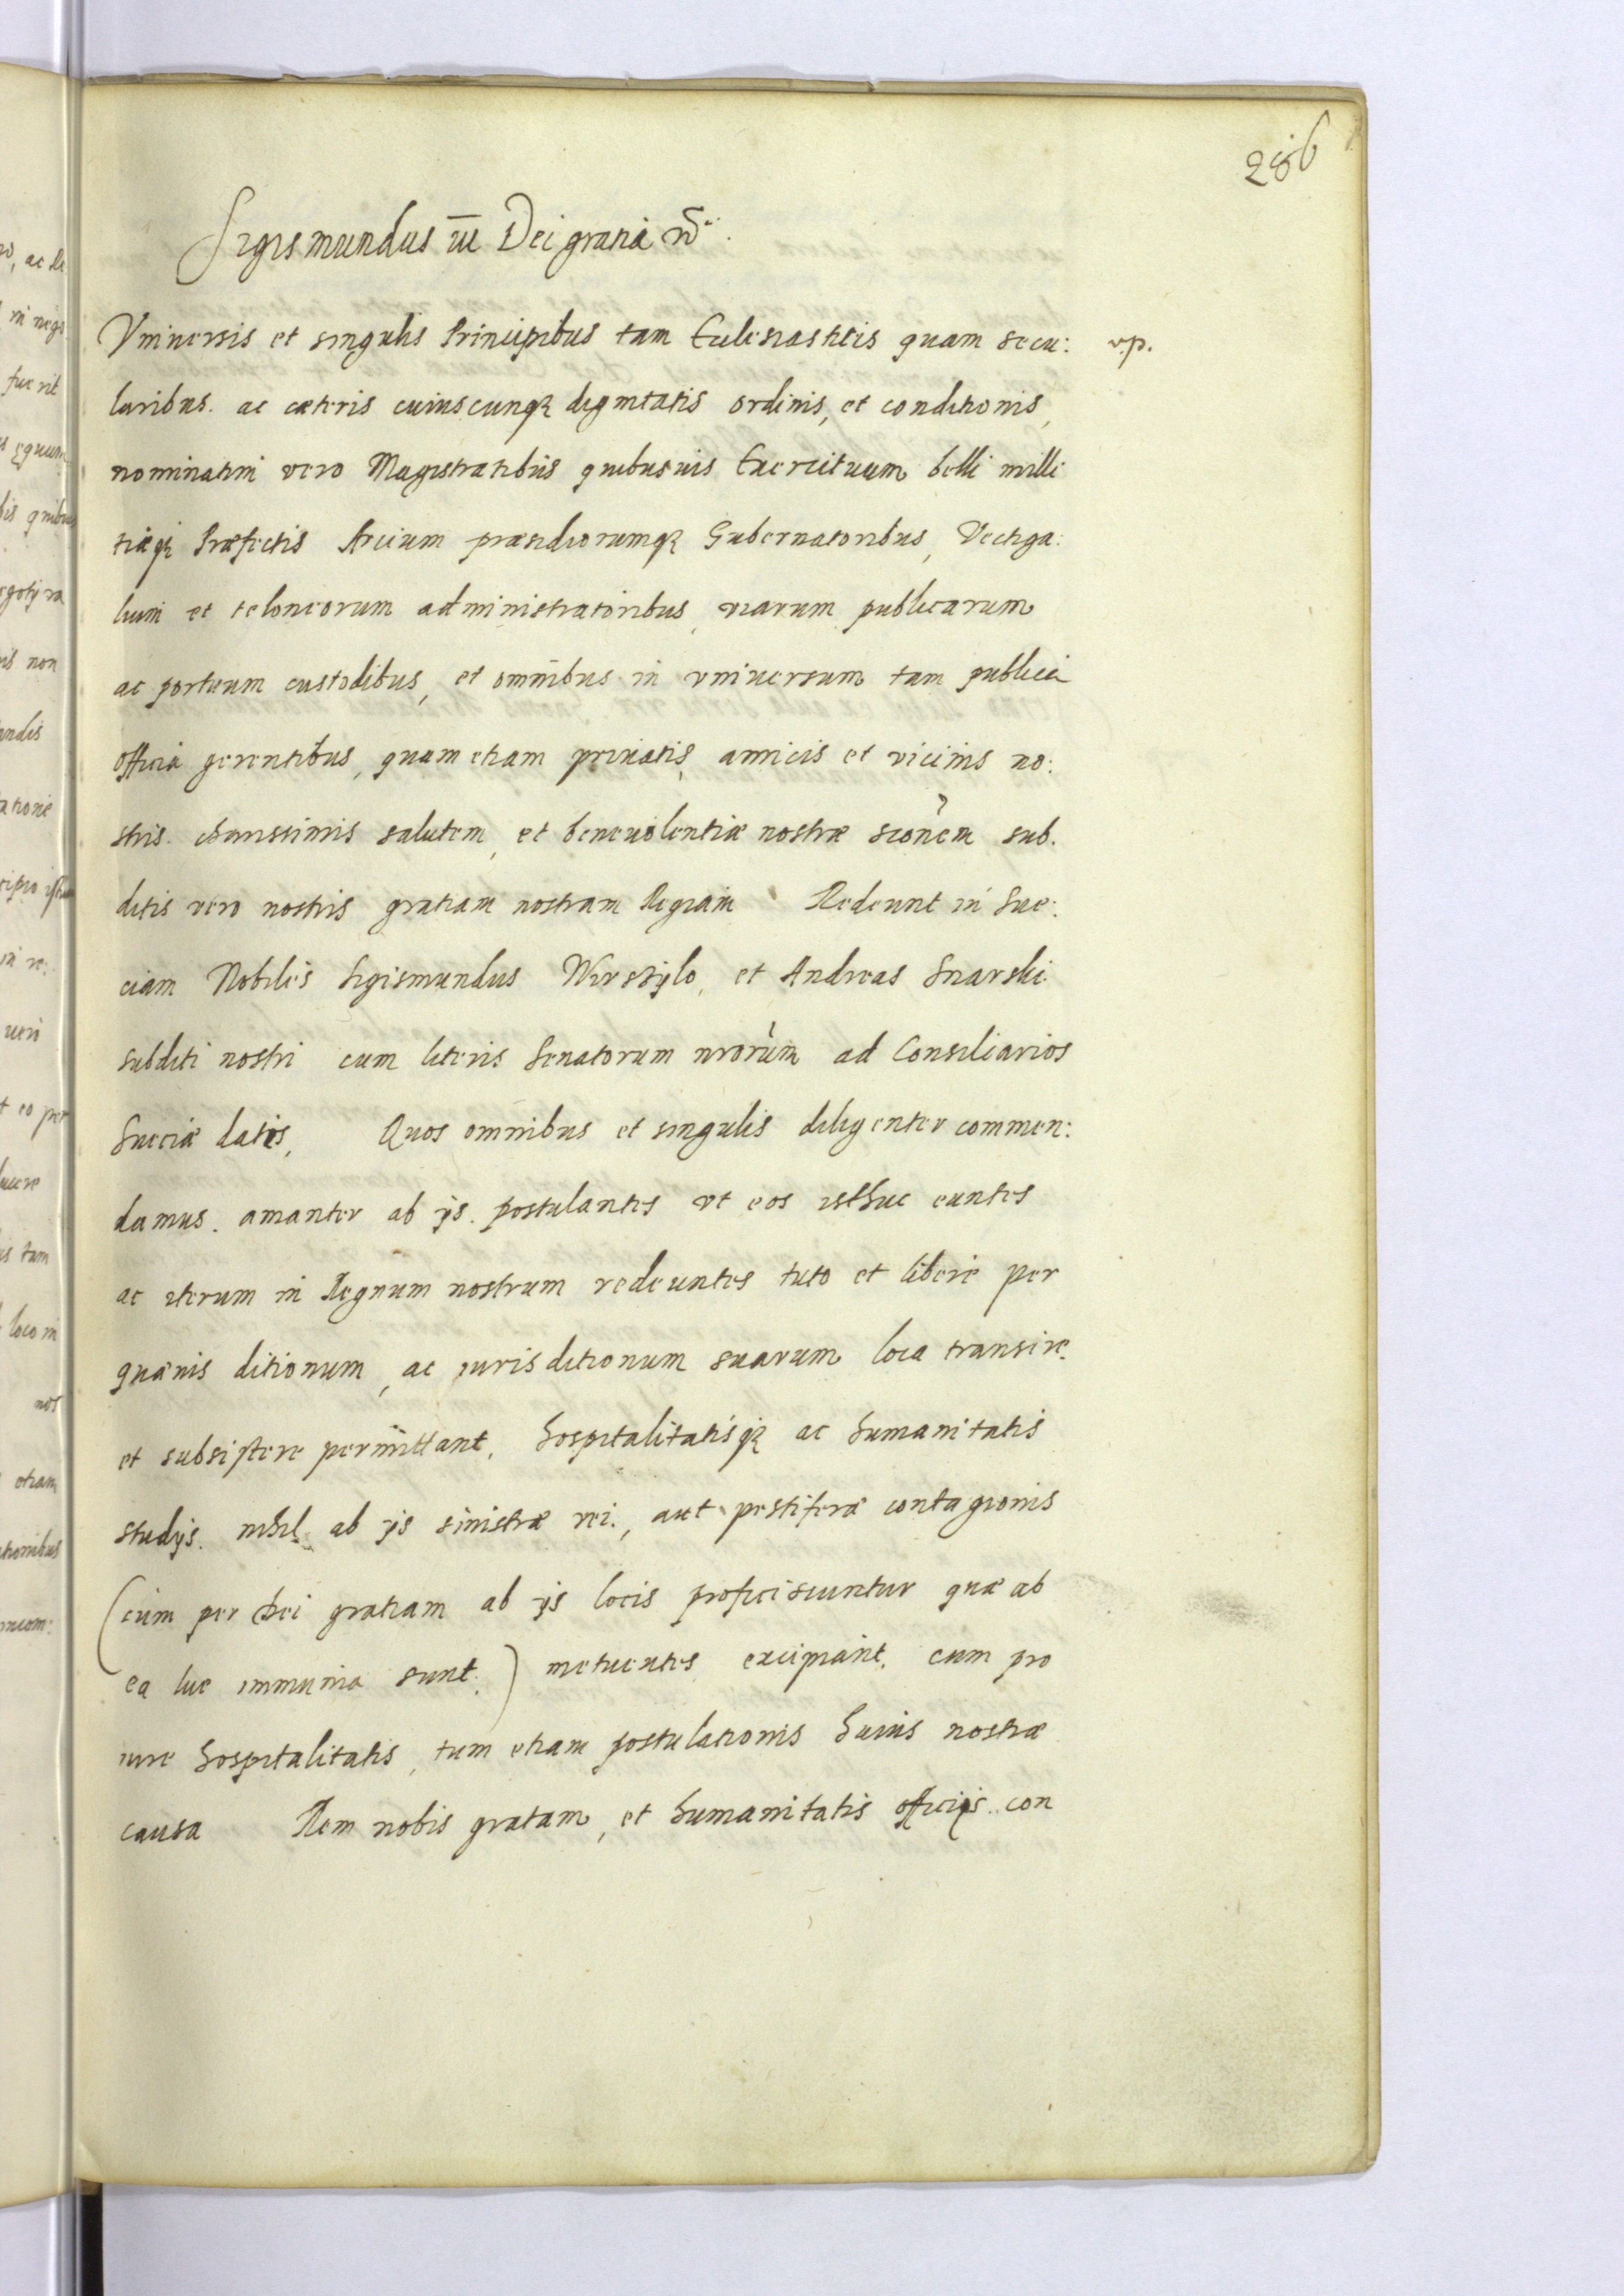 286
Sigismundus III Dei gratia
Vniuersis et singulis Principibus tam Ecclesiasticis quam secu:
v.p.
laribus. ac cæteris cuiuscunq dignitatis ordinis, et conditionis,
nominatim vero Magistratibus quibusuis Exercituum belli milli
tiæq Præfectis Arcium præsidiorumq Gubernatoribus, Vectiga:
lium et teloneorum administratoribus, viarum publicarum
ac portuum custodibus, et omnibus in vniuersum tam publica
officia gerentibus, quam etiam priuatis, amicis et vicinis no:
stris. charissimis salutem, et beneuolentiæ nostræ sub.
ditis vero nostris gratiam nostram Regiam Redeunt in Sue:
ciam Nobiles Sigismundus Wirszÿlo, et Andreas Snarski
subditi nostri cum literis Senatorum nrorum ad Consiliarios
Sueciæ datis, Quos omnibus et singulis diligenter commen:
damus. amanter ab ijs. postulantes vt eos isthuc euntes
ac iterum in Regnum nostrum redeuntes tuto et libere per
quæuis ditionum, ac iurisditionum suarum loca transire.
et subsistere permittant, hospitalitatisq ac humanitatis
studijs. nihil ab ijs sinistræ rei., aut pestiferæ contagionis
(cum per Dei gratiam ab ijs locis proficiscuntur quæ ab
ea lue immunia sunt.) metuentes excipiant. cum pro
iure hospitalitatis, tum etiam postulationis huius nostræ
causa Rem nobis gratam, et humanitatis officijs con